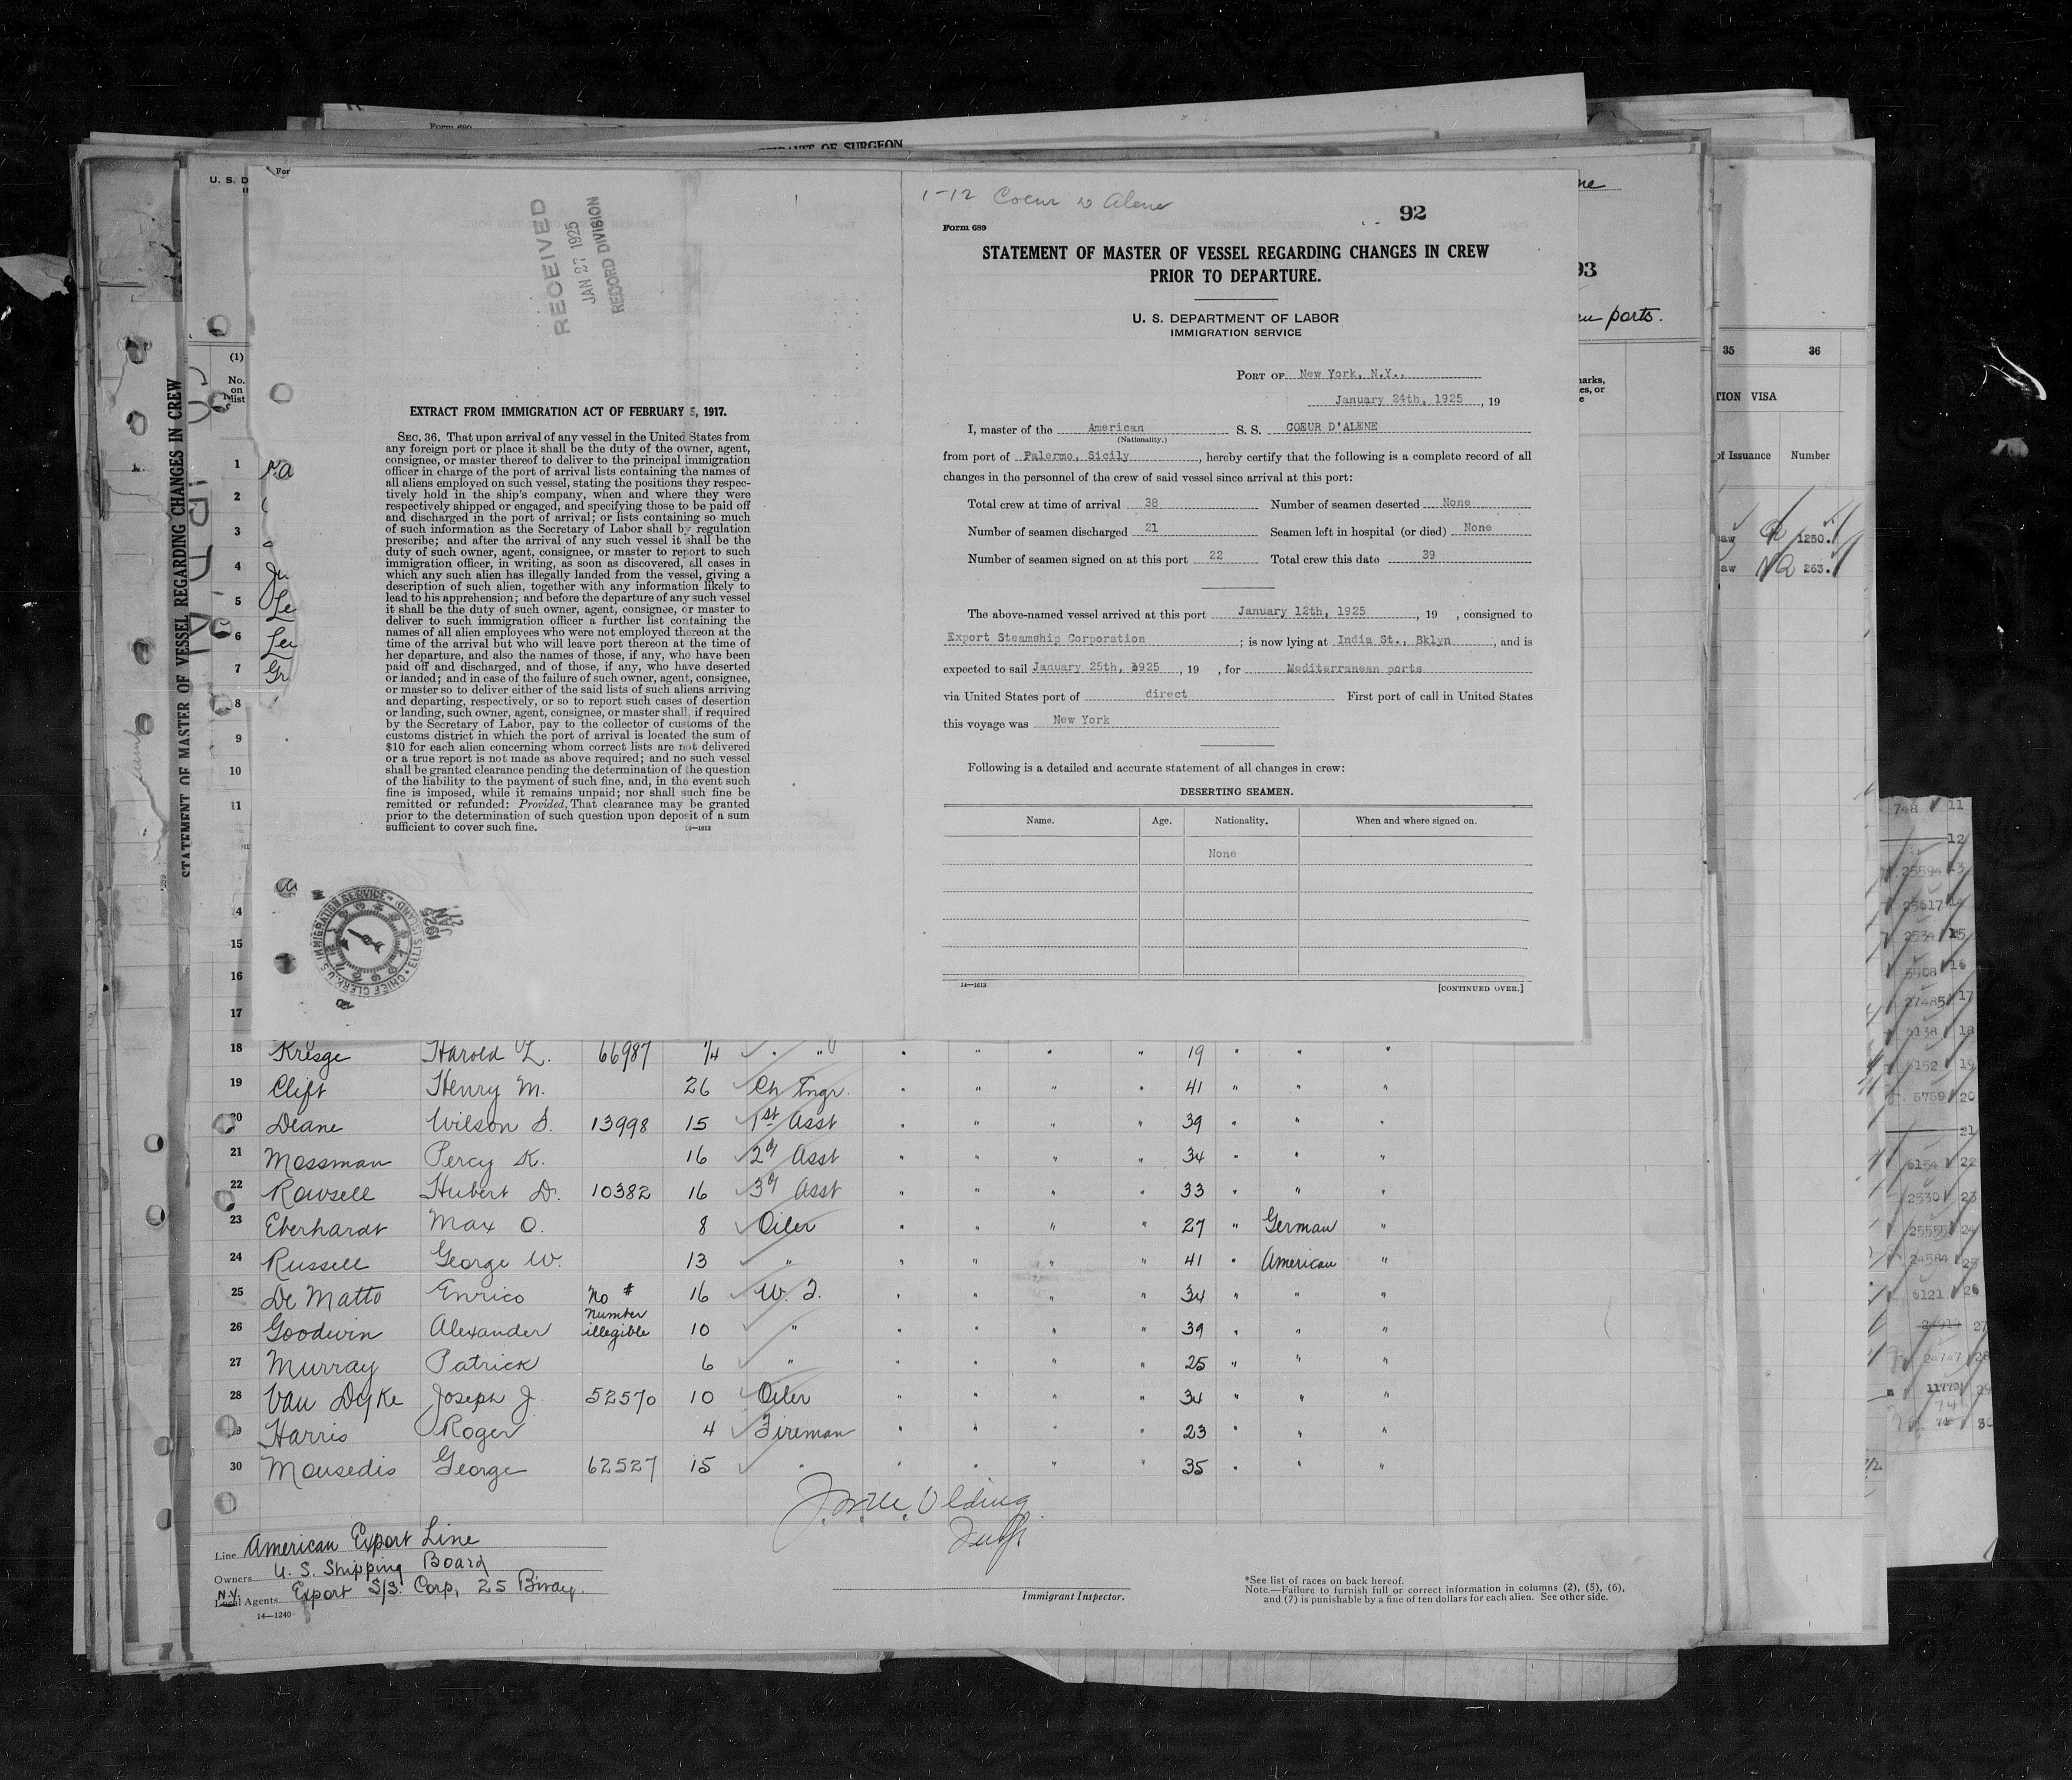 Form 689
AFFIDAVIT OF SURGEON
U. S. D
For
RECEIVED
JAN 27 1925
RECORD DIVISION
EXTRACT FROM IMMIGRATION ACT OF FEBRUARY 5, 1917.
SEC. 36. That upon arrival of any vessel in the United States from
any foreign port or place it shall be the duty of the owner, agent,
consignee, or master thereof to deliver to the principal immigration
officer in charge of the port of arrival lists containing the names of
all aliens employed on such vessel, stating the positions they respec-
tively hold in the ship's company, when and where they were
respectively shipped or engaged, and specifying those to be paid off
and discharged in the port of arrival; or lists containing so much
of such information as the Secretary of Labor shall by regulation
prescribe; and after the arrival of any such vessel it shall be the
duty of such owner, agent, consignee, or master to report to such
immigration officer, in writing, as soon as discovered, all cases in
which any such alien has illegally landed from the vessel, giving a
description of such alien, together with any information likely to
lead to his apprehension; and before the departure of any such vessel
it shall be the duty of such owner, agent, consignee, or master to
deliver to such immigration officer a further list containing the
names of all alien employees who were not employed thereon at the
time of the arrival but who will leave port thereon at the time of
her departure, and also the names of those, if any, who have been
paid off and discharged, and of those, if any, who have deserted
or landed; and in case of the failure of such owner, agent, consignee,
or master so to deliver either of the said lists of such aliens arriving
and departing, respectively, or so to report such cases of desertion
or landing, such owner, agent, consignee, or master shall, if required
by the Secretary of Labor, pay to the collector of customs of the
customs district in which the port of arrival is located the sum of
$10 for each alien concerning whom correct lists are not delivered
or a true report is not made as above required; and no such vessel
shall be granted clearance pending the determination of the question
of the liability to the payment of such fine, and, in the event such
fine is imposed, while it remains unpaid; nor shall such fine be
remitted or refunded: Provided, That clearance may be granted
prior to the determination of such question upon deposit of a sum
sufficient to cover such fine. 14—1613
CHIEF CLERK, U.S. IMMIGRATION SERVICE ELLIS ISLAND
JAN 27 1925
1-12 Coeur D Alene
92
Form 689
STATEMENT OF MASTER OF VESSEL REGARDING CHANGES IN CREW
PRIOR TO DEPARTURE.
U. S. DEPARTMENT OF LABOR
IMMIGRATION SERVICE
PORT OF New York, N.Y.,
January 24th, 1925, 19
I, master of the American S. S. COEUR D'ALENE
(Nationality.)
from port of Palermo, Sicily, hereby certify that the following is a complete record of all
changes in the personnel of the crew of said vessel since arrival at this port:
Total crew at time of arrival 38 Number of seamen deserted None
Number of seamen discharged 21 Seamen left in hospital (or died) None
Number of seamen signed on at this port 22 Total crew this date 39
The above-named vessel arrived at this port January 12th, 1925, 19 , consigned to
Export Steamship Corporation ; is now lying at India St., Bklyn , and is
expected to sail January 25th, 1925 , 19 , for Mediterranean ports
via United States port of direct First port of call in United States
this voyage was New York
Following is a detailed and accurate statement of all changes in crew:
DESERTING SEAMEN.
Name. Age. Nationality. When and where signed on.
None
14—1613 [CONTINUED OVER.]
STATEMENT OF MASTER OF VESSEL REGARDING CHANGES IN CREW
(1)
No. on list
1
2
3
4
5
6
7
8
9
10
11
15
16
17
93
ports.
35 36
TION VISA
of Issuance Number
1250.
263.
18 Kresge Harold L. 66987 1/4 " " " " " 19 " " "
19 Clift Henry M. 26 Ch Engr. " " " " 41 " " "
20 Deane Wilson S. 13998 15 1st Asst " " " " 39 " " "
21 Mossman Percy K. 16 2d Asst " " " " 34 " " "
22 Rowsell Hubert D. 10382 16 3d Asst " " " " 33 " " "
23 Eberhardt Max O. 8 Oiler " " " " 27 " German "
24 Russell George W. 13 " " " " " 41 " American "
25 De Matto Enrico No # 16 W. T. " " " " 34 " " "
26 Goodwin Alexander number illegible 10 " " " " " 39 " " "
27 Murray Patrick 6 " " " " " 25 " " "
28 Van Dyke Joseph J. 52570 10 Oiler " " " " 34 " " "
29 Harris Roger 4 Fireman " " " " 23 " " "
30 Mousedis George 62527 15 " " " " " 35 " " "
Line American Export Line
Owners U. S. Shipping Board
N.Y. Local Agents Export S/S. Corp, 25 B'way.
14—1240
Immigrant Inspector.
*See list of races on back hereof.
Note.—Failure to furnish full or correct information in columns (2), (5), (6),
and (7) is punishable by a fine of ten dollars for each alien. See other side.